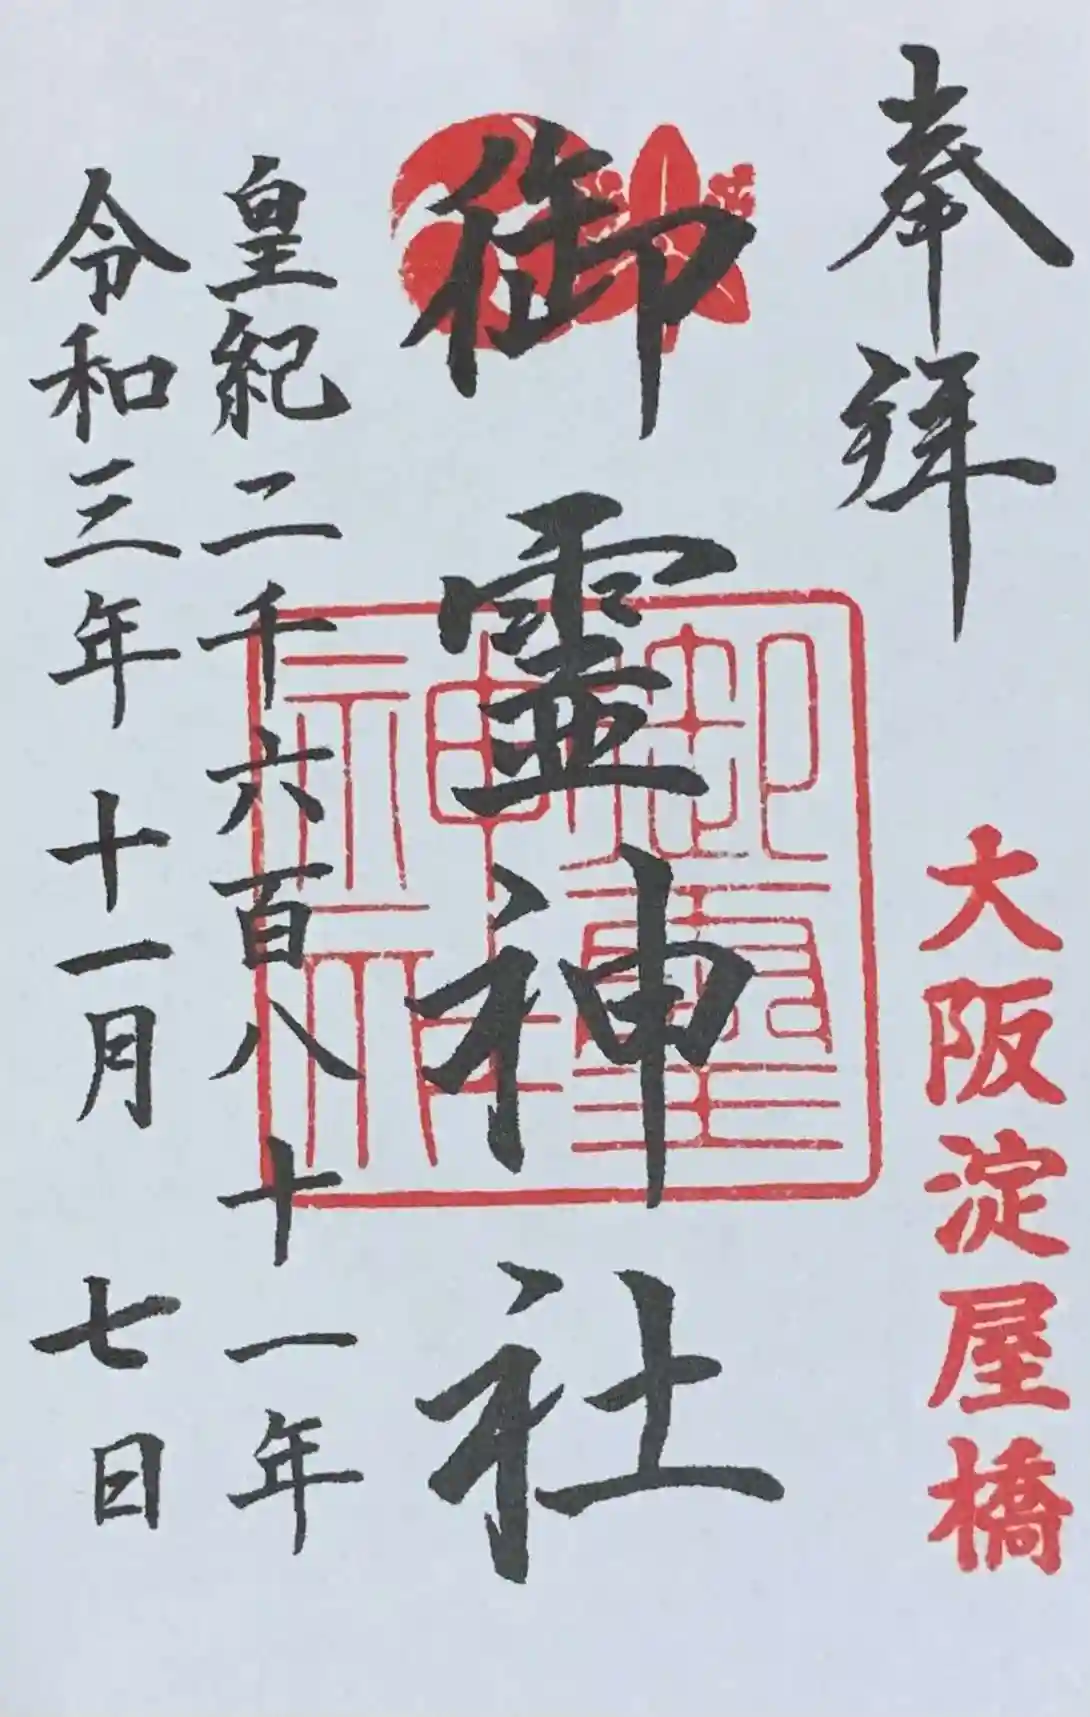 奉拝
大阪淀屋橋
御霊神社
御霊神社
皇紀二千六百八十一年
令和三年十一月七日